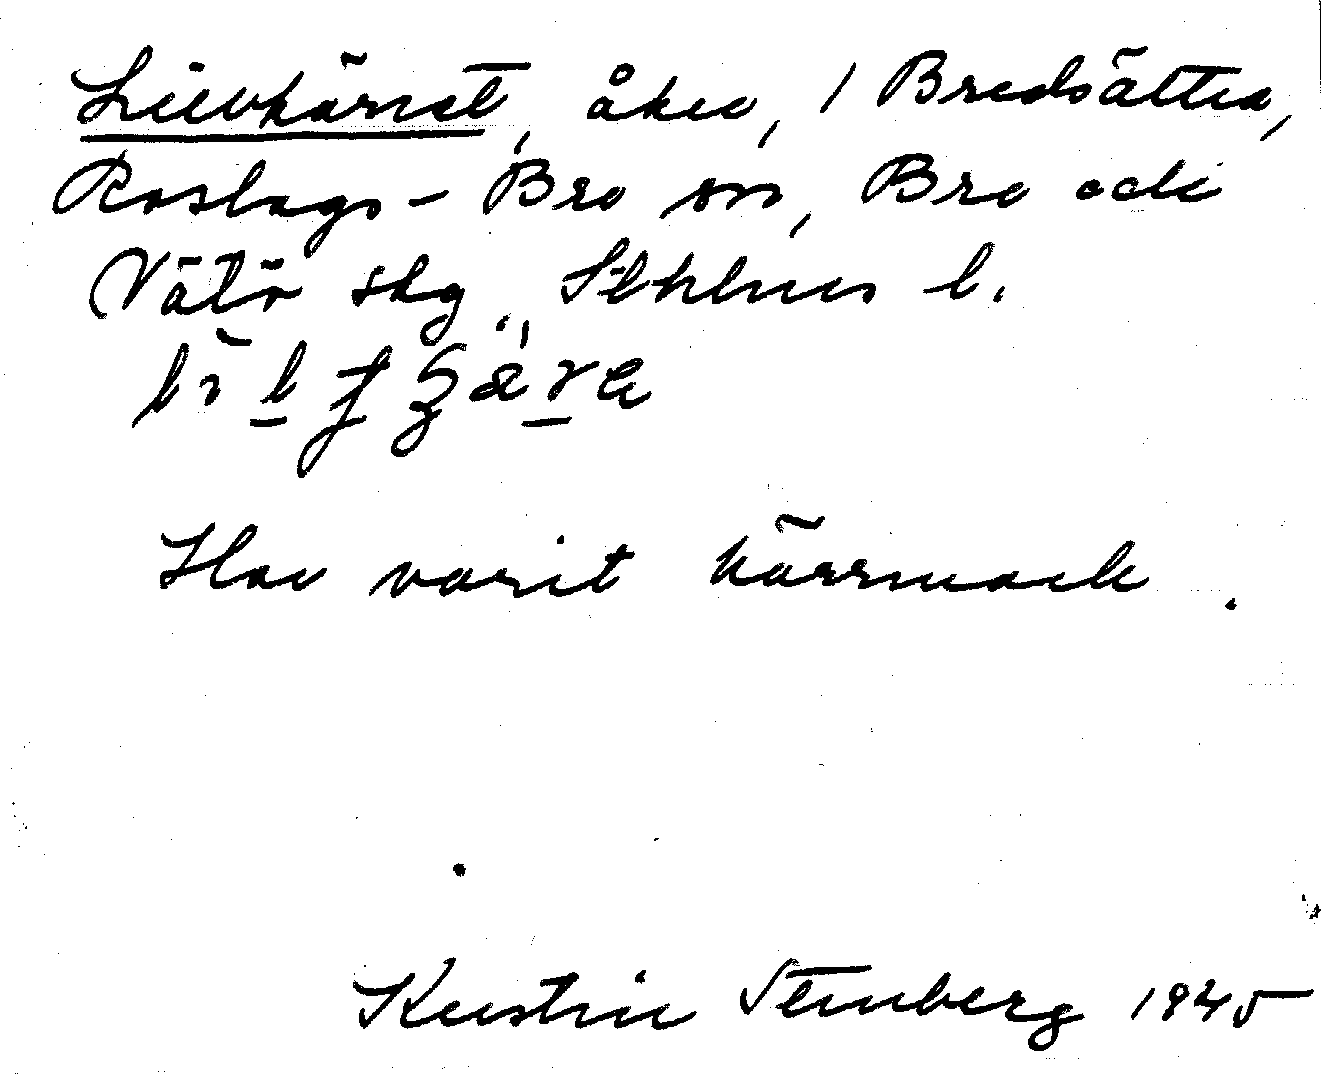 Lillkärret, åker, / Bredsättra,
Roslags-Bro sn, Bro och
Vätö skg, Sthlms l.
Har varit kärrmark.
Kerstin Stenberg 1945